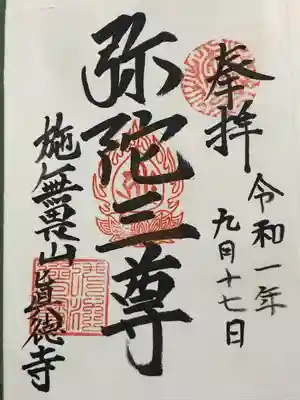 奉拝
令和一年
九月十七日
弥陀三尊
施無畏山真徳寺